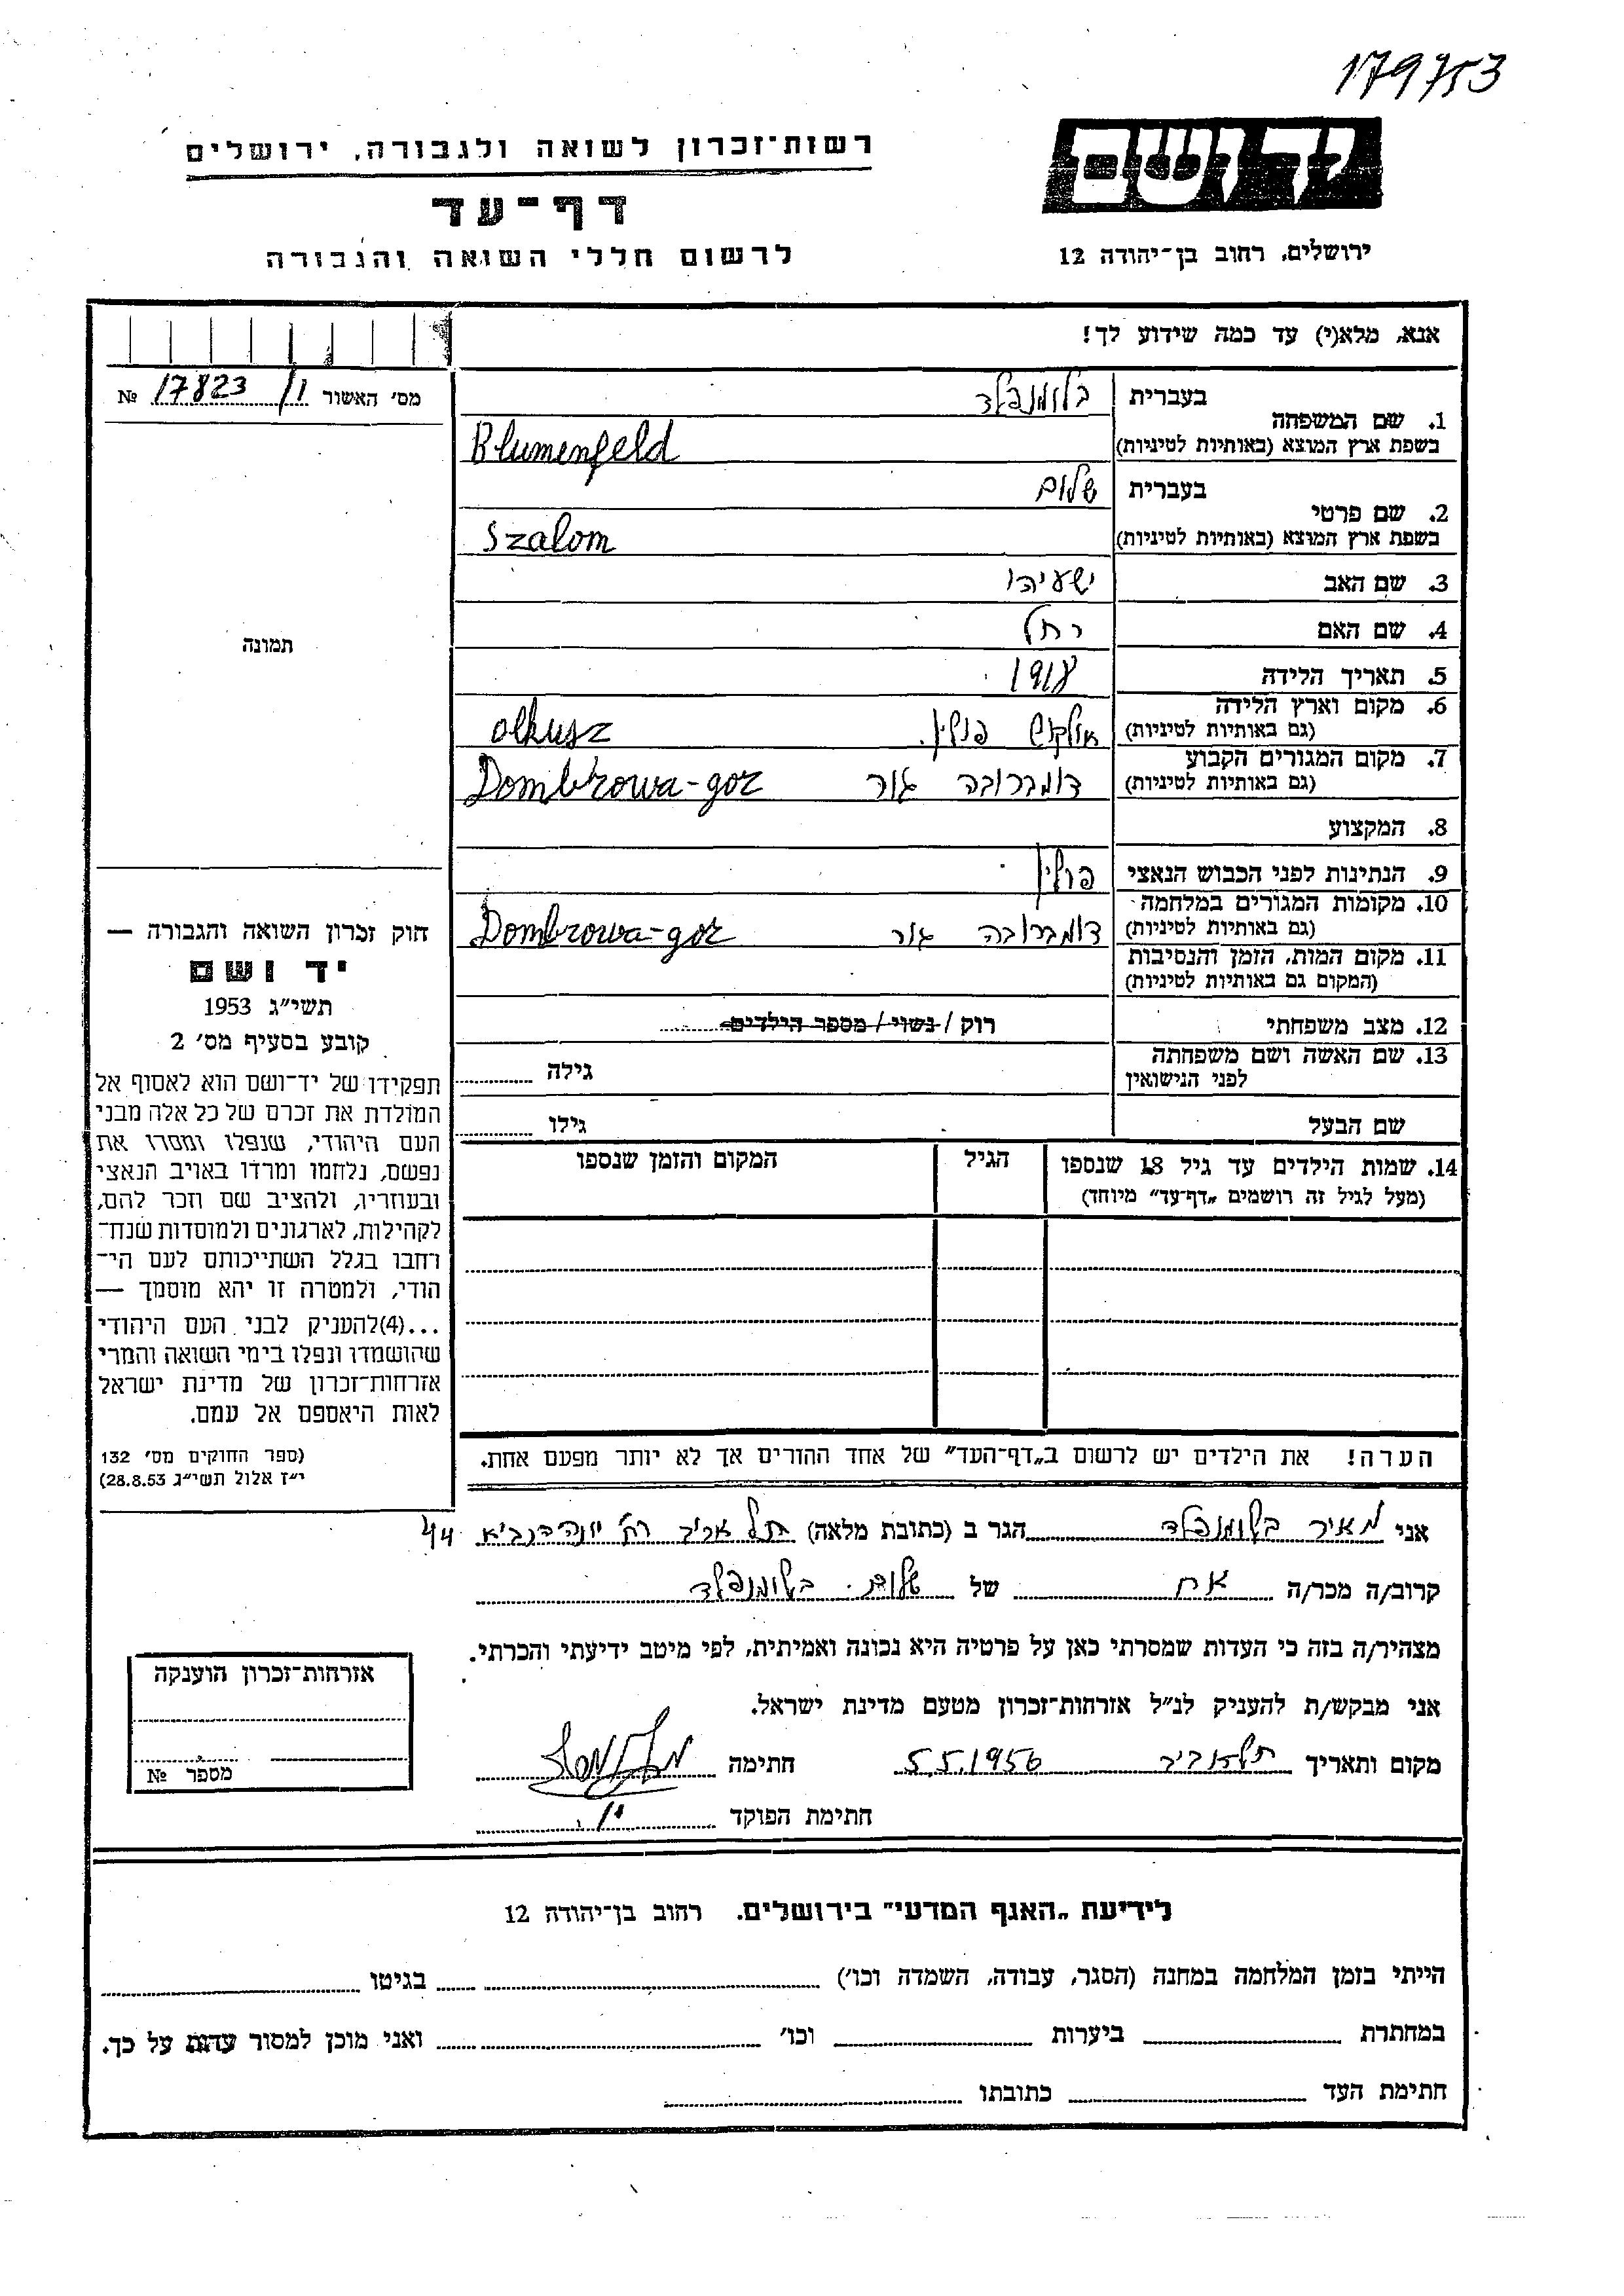 179753
רשות-זכרון לשואה ולגבורה, ירושלים
יד ושם
דף-עד
לרשום חללי השואה והגבורה
ירושלים, רחוב בן-יהודה 12
אנא, מלא(י) עד כמה שידוע לך!
מס׳ האשור 17823/1 №
תמונה
1. שם המשפחה בעברית בלומנפלד
בשפת ארץ המוצא (באותיות לטיניות) Blumenfeld
2. שם פרטי בעברית שלום
בשפת ארץ המוצא (באותיות לטיניות) Szalom
3. שם האב ישעיהו
4. שם האם רחל
5. תאריך הלידה 1918
6. מקום וארץ הלידה אולקוש פולין. olkusz
(גם באותיות לטיניות)
7. מקום המגורים הקבוע דומברובה גור Dombrowa-gor
(גם באותיות לטיניות)
8. המקצוע
9. הנתינות לפני הכבוש הנאצי פולין
10. מקומות המגורים במלחמה דומברובה גור Dombrowa-gor
(גם באותיות לטיניות)
11. מקום המות, הזמן והנסיבות
(המקום גם באותיות לטיניות)
12. מצב משפחתי רוק / נשוי / מספר הילדים
13. שם האשה ושם משפחתה גילה
לפני הנישואין
שם הבעל גילו
14. שמות הילדים עד גיל 18 שנספו הגיל המקום והזמן שנספו
(מעל לגיל זה רושמים „דף-עד״ מיוחד)
הערה! את הילדים יש לרשום ב„דף-העד״ של אחד ההורים אך לא יותר מפעם אחת.
חוק זכרון השואה והגבורה —
יד ושם
תשי״ג 1953
קובע בסעיף מס׳ 2
תפקידו של יד-ושם הוא לאסוף אל
המולדת את זכרם של כל אלה מבני
העם היהודי, שנפלו ומסרו את
נפשם, נלחמו ומרדו באויב הנאצי
ובעוזריו, ולהציב שם וזכר להם,
לקהילות, לארגונים ולמוסדות שנח-
רחבו בגלל השתייכותם לעם הי-
הודי, ולמטרה זו יהא מוסמך —
...(4)להעניק לבני העם היהודי
שהושמדו ונפלו בימי השואה והמרי
אזרחות-זכרון של מדינת ישראל
לאות היאספם אל עמם.
(ספר החוקים מס׳ 132
י״ז אלול תשי״ג 28.8.53)
אני מאיר בלומנפלד הגר ב (כתובת מלאה) תל אביב רח׳ יונה הנביא 44
קרוב/ה מכר/ה אח של שלום בלומנפלד
מצהיר/ה בזה כי העדות שמסרתי כאן על פרטיה היא נכונה ואמיתית, לפי מיטב ידיעתי והכרתי.
אני מבקש/ת להעניק לנ״ל אזרחות-זכרון מטעם מדינת ישראל.
מקום ותאריך תל אביב 5.5.1956 חתימה
חתימת הפוקד
אזרחות-זכרון הוענקה
מספר №
לידיעת „האגף המדעי״ בירושלים. רחוב בן-יהודה 12
הייתי בזמן המלחמה במחנה (הסגר, עבודה, השמדה וכו׳) בגיטו
במחתרת ביערות וכו׳ ואני מוכן למסור עדות על כך.
חתימת העד כתובתו